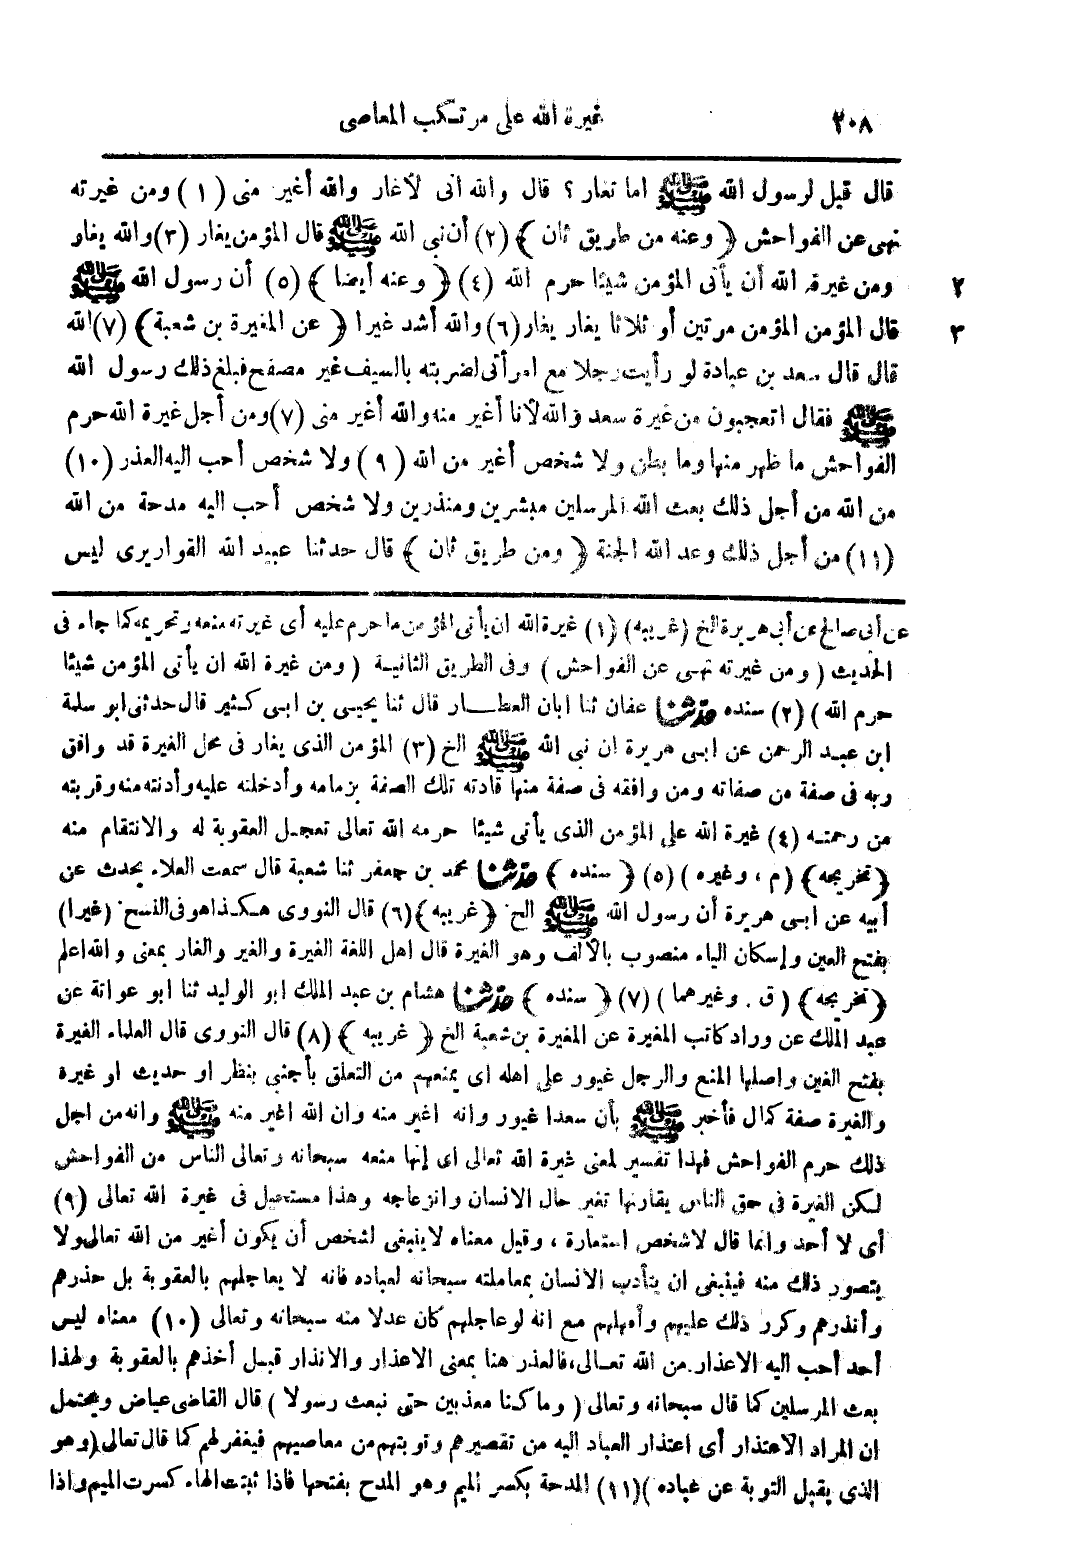 ٢٠٨ غيرة الله على مرتكب المعاصى
قال قيل لرسول الله ﷺ اما تغار ؟ قال والله انى لأغار والله أغير منى (١) ومن غيرته
نهى عن الفواحش ﴿وعنه من طريق ثان﴾ (٢) أن نبى الله ﷺ قال المؤمن يغار (٣) والله يغار
ومن غيرة الله أن يأتى المؤمن شيئا حرم الله (٤) ﴿وعنه أيضا﴾ (٥) أن رسول الله ﷺ ٢
قال المؤمن المؤمن مرتين أو ثلاثا يغار يغار (٦) والله أشد غيرا ﴿عن المغيرة بن شعبة﴾ (٧) الله ٣
قال قال سعد بن عبادة لو رأيت رجلا مع امرأتى لضربته بالسيف غير مصفح فبلغ ذلك رسول الله
ﷺ فقال اتعجبون من غيرة سعد والله لأنا أغير منه والله أغير منى (٧) ومن أجل غيرة الله حرم
الفواحش ما ظهر منها وما بطن ولا شخص أغير من الله (٩) ولا شخص أحب اليه العذر (١٠)
من الله من أجل ذلك بعث الله المرسلين مبشرين ومنذرين ولا شخص أحب اليه مدحة من الله
(١١) من أجل ذلك وعد الله الجنة ﴿ومن طريق ثان﴾ قال حدثنا عبيد الله القواريرى ليس
عن أبى صالح عن أبى هريرة الخ (غريبه) (١) غيرة الله ان يأتى المؤمن ما حرم عليه أى غيرته منعه وتحريمه كما جاء فى
الحديث (ومن غيرته نهى عن الفواحش) وفى الطريق الثانية (ومن غيرة الله ان يأتى المؤمن شيئا
حرم الله) (٢) سنده حدثنا عفان ثنا ابان العطار قال ثنا يحيى بن ابى كثير قال حدثنى ابو سلمة
ابن عبد الرحمن عن ابى هريرة ان نبى الله ﷺ الخ (٣) المؤمن الذى يغار فى محل الغيرة قد وافق
ربه فى صفة من صفاته ومن وافقه فى صفة منها قادته تلك الصفة بزمامه وأدخلته عليه وأدنته منه وقربته
من رحمته (٤) غيرة الله على المؤمن الذى يأتى شيئا حرمه الله تعالى تعجل العقوبة له والانتقام منه
﴿تخريجه﴾ (م، وغيره) (٥) ﴿سنده﴾ حدثنا محمد بن جعفر ثنا شعبة قال سمعت العلاء يحدث عن
أبيه عن ابى هريرة أن رسول الله ﷺ الخ ﴿غريبه﴾ (٦) قال النووى هكذا هو فى النسخ (غيرا)
بفتح العين وإسكان الياء منصوب بالألف وهو الغيرة قال اهل اللغة الغيرة والغير والغار بمعنى والله اعلم
﴿تخريجه﴾ (ق. وغيرهما) (٧) ﴿سنده﴾ حدثنا هشام بن عبد الملك ابو الوليد ثنا ابو عوانة عن
عبد الملك عن وراد كاتب المغيرة عن المغيرة بن شعبة الخ ﴿غريبه﴾ (٨) قال النووى قال العلماء الغيرة
بفتح الغين واصلها المنع والرجل غيور على اهله اى يمنعهم من التعلق بأجنبى بنظر او حديث او غيرة
والغيرة صفة كمال فأخبر ﷺ بأن سعدا غيور وانه اغير منه وان الله اغير منه ﷺ وانه من اجل
ذلك حرم الفواحش فهذا تفسير لمعنى غيرة الله تعالى اى إنها منعه سبحانه وتعالى الناس من الفواحش
لكن الغيرة فى حق الناس يقارنها تغير حال الانسان وانزعاجه وهذا مستحيل فى غيرة الله تعالى (٩)
أى لا أحد وانما قال لاشخص استعارة، وقيل معناه لاينبغى لشخص أن يكون أغير من الله تعالى ولا
يتصور ذلك منه فينبغى ان يتأدب الانسان بمعاملته سبحانه لعباده فانه لا يعاجلهم بالعقوبة بل حذرهم
وأنذرهم وكرر ذلك عليهم وأمهلهم مع انه لو عاجلهم كان عدلا منه سبحانه وتعالى (١٠) معناه ليس
أحد أحب اليه الاعذار من الله تعالى، فالعذر هنا بمعنى الاعذار والانذار قبل أخذهم بالعقوبة ولهذا
بعث المرسلين كما قال سبحانه وتعالى (وما كنا معذبين حتى نبعث رسولا) قال القاضى عياض ويحتمل
ان المراد الاعتذار أى اعتذار العباد اليه من تقصيرهم وتوبتهم من معاصيهم فيغفر لهم كما قال تعالى (وهو
الذى يقبل التوبة عن عباده) (١١) المدحة بكسر الميم وهو المدح بفتحها فاذا ثبتت الهاء كسرت الميم واذا